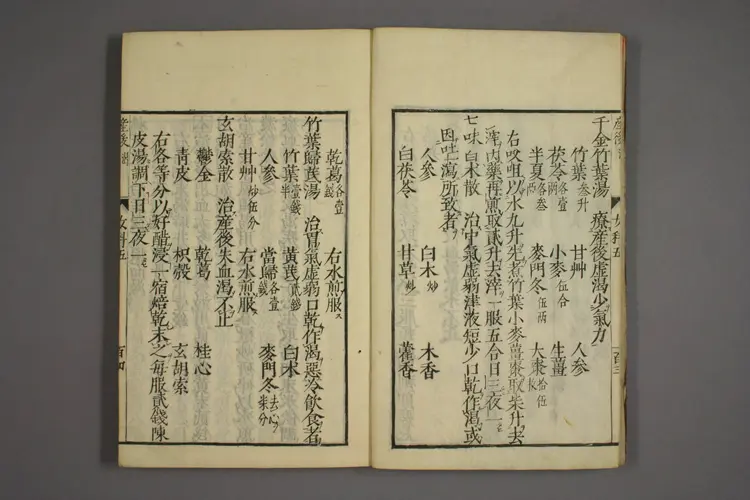 千金竹葉湯 療產後虛渴少氣力
竹葉叁升 甘艸 人參
茯苓各壹兩 小麥伍合 生薑
半夏各叁兩 麥門冬伍兩 大棗拾伍枚
右㕮咀以水九升先煮竹葉小麥薑棗取柒升去
滓內藥再煎取貳升去滓一服五合日三夜一
七味白朮散 治中氣虛弱津液短少口乾作渴或
因吐瀉所致者
人參 白朮炒 木香
白茯苓 甘草 藿香
百三
乾葛各壹錢 右水煎服
竹葉歸茋湯 治胃氣虛弱口乾作渴惡冷飲食者
竹葉壹錢半 黃茋貳錢 白朮
人參 當歸各壹錢 麥門冬去心柒分
甘艸炒伍分 右水煎服
玄胡索散 治產後失血渴不止
鬱金 乾葛 桂心
青皮 枳殼 玄胡索
右各等分以好醋浸一宿焙乾末之每服貳錢陳
皮湯調下日三夜一
女科五 百四